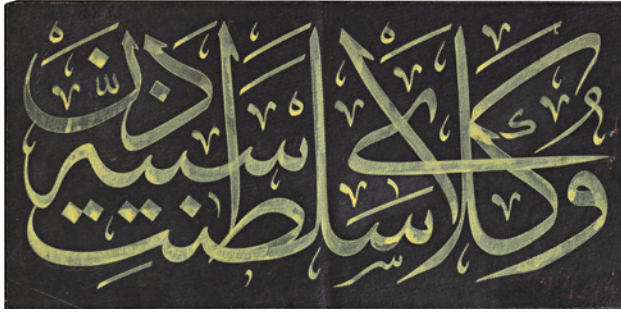 وكلاى سلطنت سنيه دن